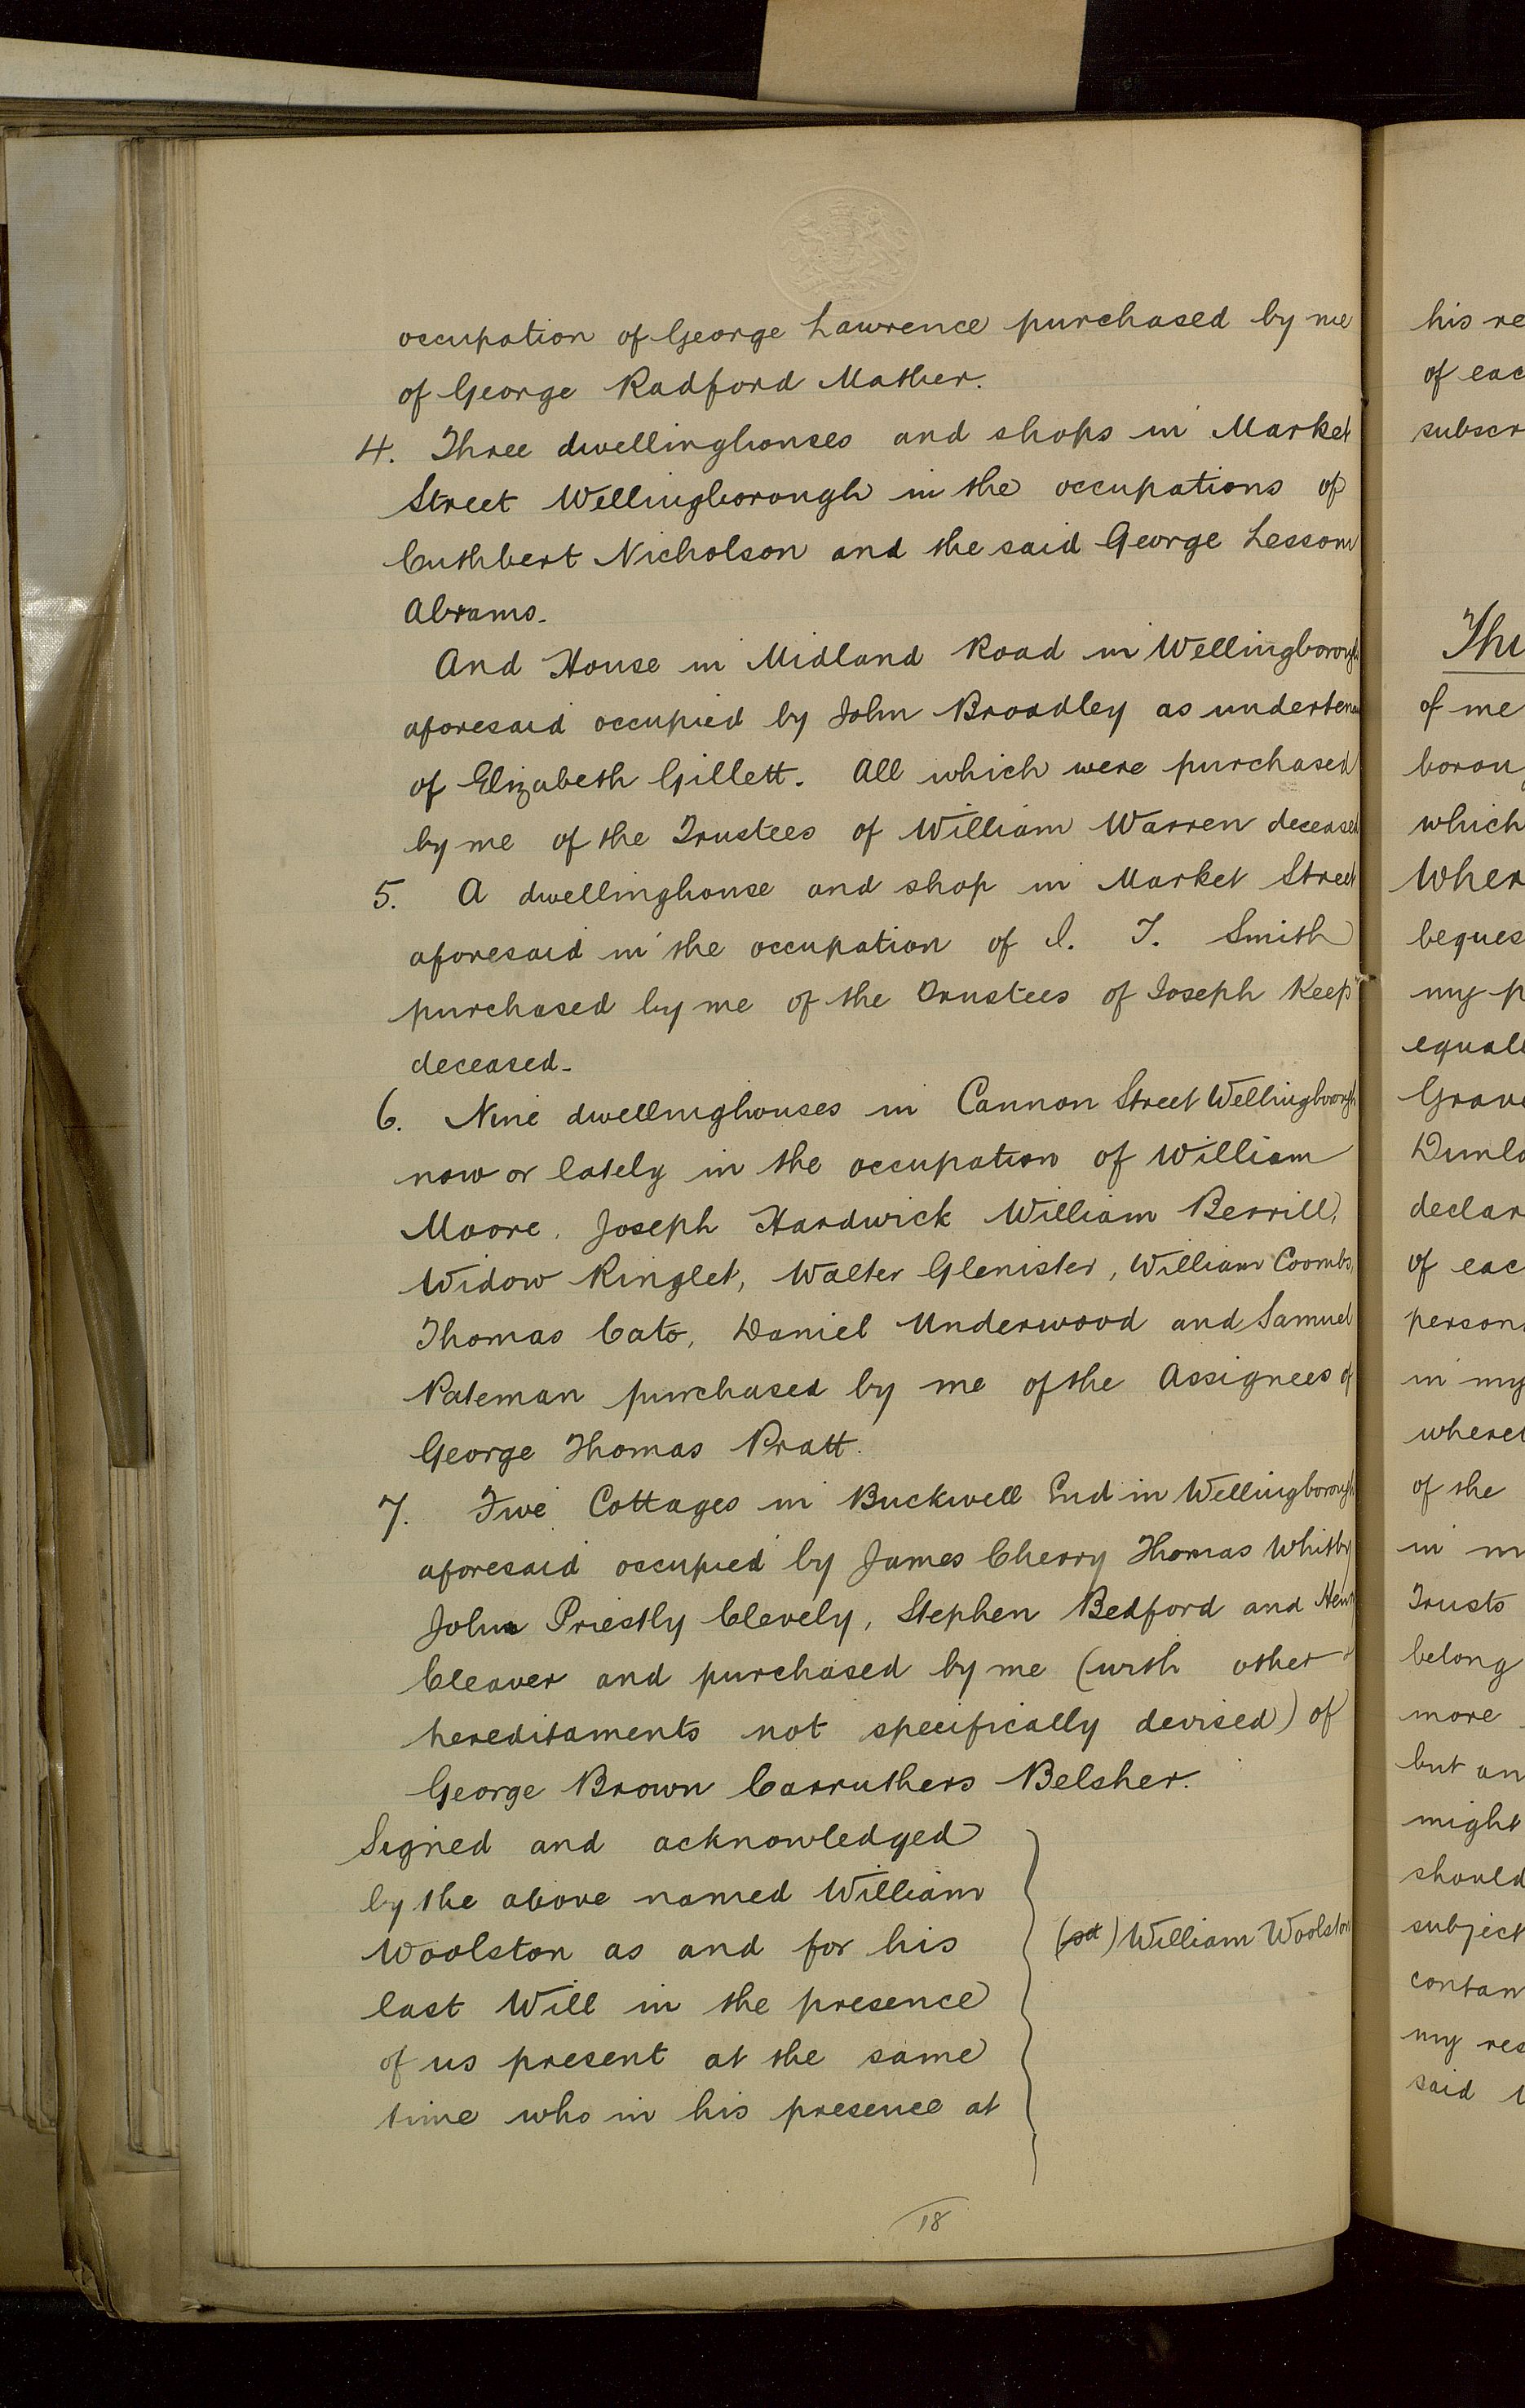 occupation of George Lawrence purchased by me
of George Radford Mather.
4. Three dwellinghouses and shops in Market
Street Wellingborough in the occupations of
Cuthbert Nicholson and the said George Lessom
Abrams.
And House in Midland Road in Wellingborough
aforesaid occupied by John Broadley as undertenant
of Elizabeth Gillett. All which were purchased
by me of the Trustees of William Warren deceased
5. A dwellinghouse and shop in Market Street
aforesaid in the occupation of I. T. Smith
purchased by me of the Trustees of Joseph Keep
deceased.
6. Nine dwellinghouses in Cannon Street Wellingborough
now or lately in the occupation of William
Moore, Joseph Hardwick William Berrill,
Widow Ringlet, Walter Glenister, William Coombs,
Thomas Cato, Daniel Underwood and Samuel
Pateman purchased by me of the Assignees of
George Thomas Pratt.
7. Five Cottages in Buckwell End in Wellingborough
aforesaid occupied by James Cherry Thomas Whitby
John Priestly Clevely, Stephen Bedford and Henry
Cleaver and purchased by me (with other
hereditaments not specifically devised) of
George Brown Carruthers Belsher.
Signed and acknowledged
by the above named William
Woolston as and for his
last Will in the presence
of us present at the same
time who in his presence at
(sd) William Woolston
18
his re
of eac
subscr
Thi
of me
borou
which
Wher
beques
my p
equall
Grave
Dunlo
declar
of eac
person
in my
where
of the
in m
Trusts
belong
more
but an
might
should
subject
contain
my res
said